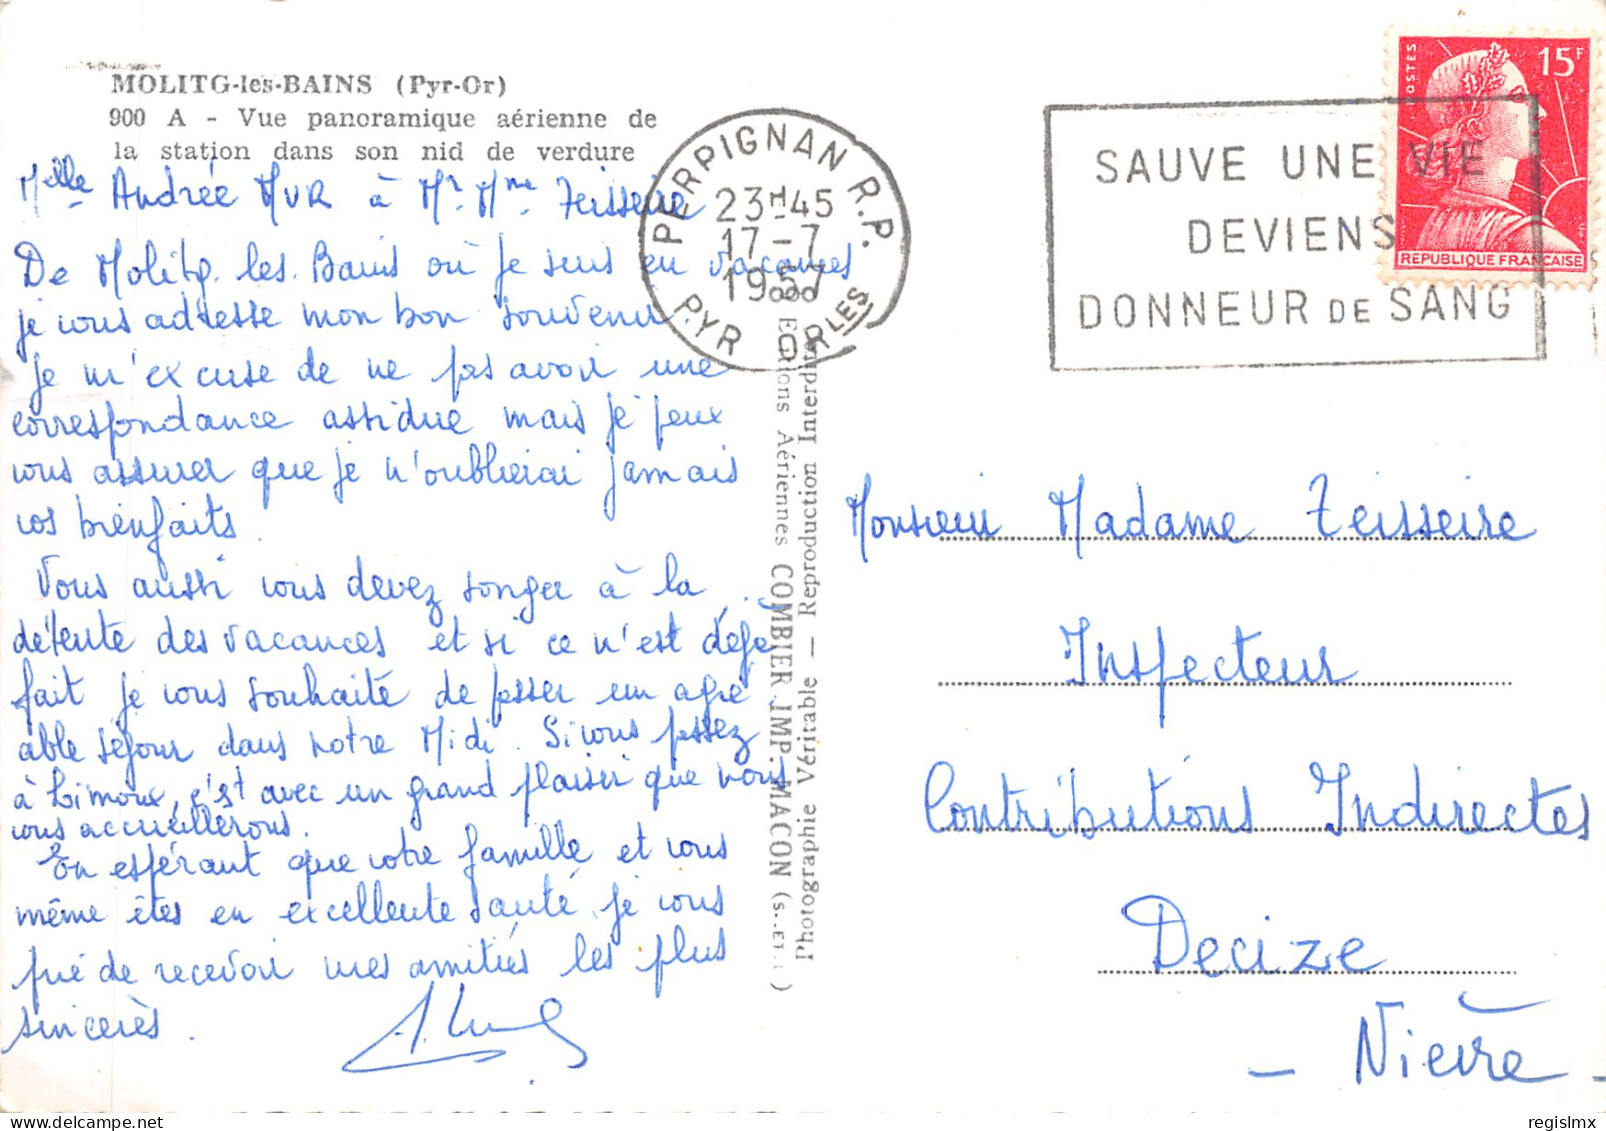 MOLITG-les-BAINS (Pyr-Or)
900 A - Vue panoramique aérienne de
la station dans son nid de verdure
Melle Andrée MUR à Mr. Mme Teisseire
De Molitg. les. Bains où je suis en vacances
je vous adresse mon bon souvenir.
Je m'excuse de ne pas avoir une
correspondance assidue mais je peux
vous assurer que je n'oublierai jamais
vos bienfaits.
Vous aussi vous devez songer à la
détente des vacances et si ce n'est déjà
fait je vous souhaite de passer un agré
able séjour dans notre Midi. Si vous passez
à Limoux, c'est avec un grand plaisir que nous
vous accueillerons.
En espérant que votre famille et vous
même êtes en excellente santé, je vous
prie de recevoir mes amitiés les plus
sincères.
PERPIGNAN R.P.
23H45
17-7
1957
PYR ORLES
Editions Aériennes COMBIER IMP. MACON (S.-ET-L.)
Photographie Véritable — Reproduction Interdite
SAUVE UNE VIE
DEVIENS
DONNEUR DE SANG
POSTES
15F
REPUBLIQUE FRANCAISE
Monsieur Madame Teisseire
Inspecteur
Contributions Indirectes
Decize
- Nièvre -
regislmx